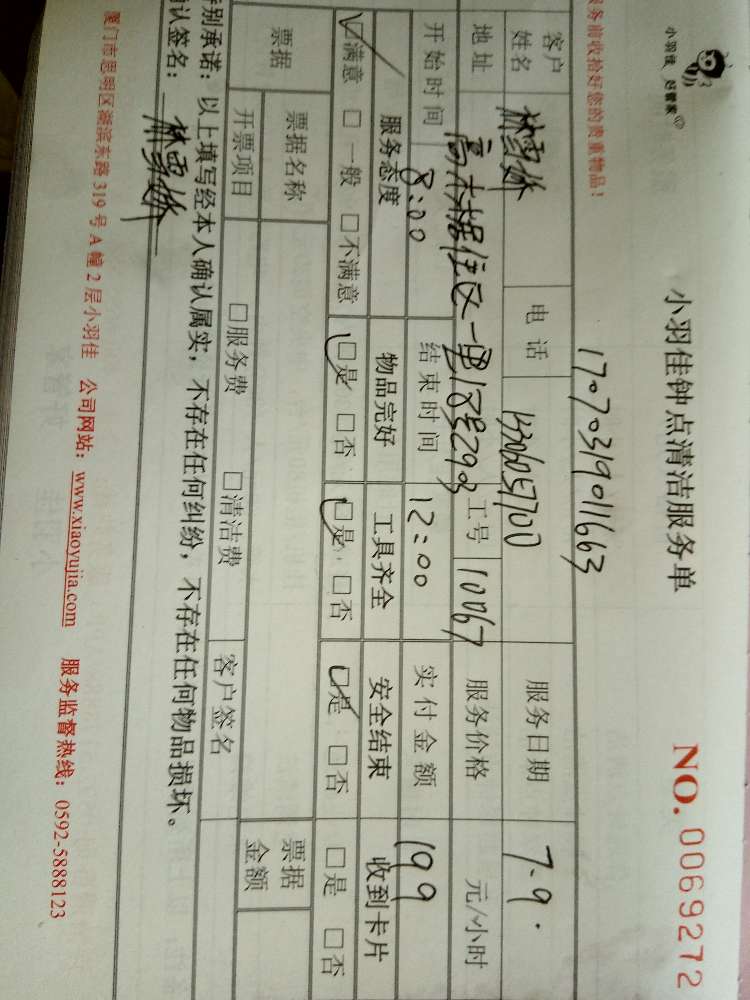 小羽佳 好管家
小羽佳钟点清洁服务单
NO. 0069272
务前收拾好您的贵重物品!
17070319011663
客户姓名 林雪娇 电话 服务日期 7.9.
地址 高林居住区一里18号2903 工号 10067 服务价格 元/小时
开始时间 8:00 结束时间 12:00 实付金额 199
服务态度 物品完好 工具齐全 安全结束 收到卡片
□满意 □一般 □不满意 □是 □否 □是 □否 □是 □否 □是 □否
票据 票据名称 票据金额
开票项目 □服务费 □清洁费 客户签名
别承诺:以上填写经本人确认属实,不存在任何纠纷,不存在任何物品损坏。
认签名:林雪娇
厦门市思明区湖滨东路319号A幢2层小羽佳 公司网站:www.xiaoyujia.com 服务监督热线:0592-5888123